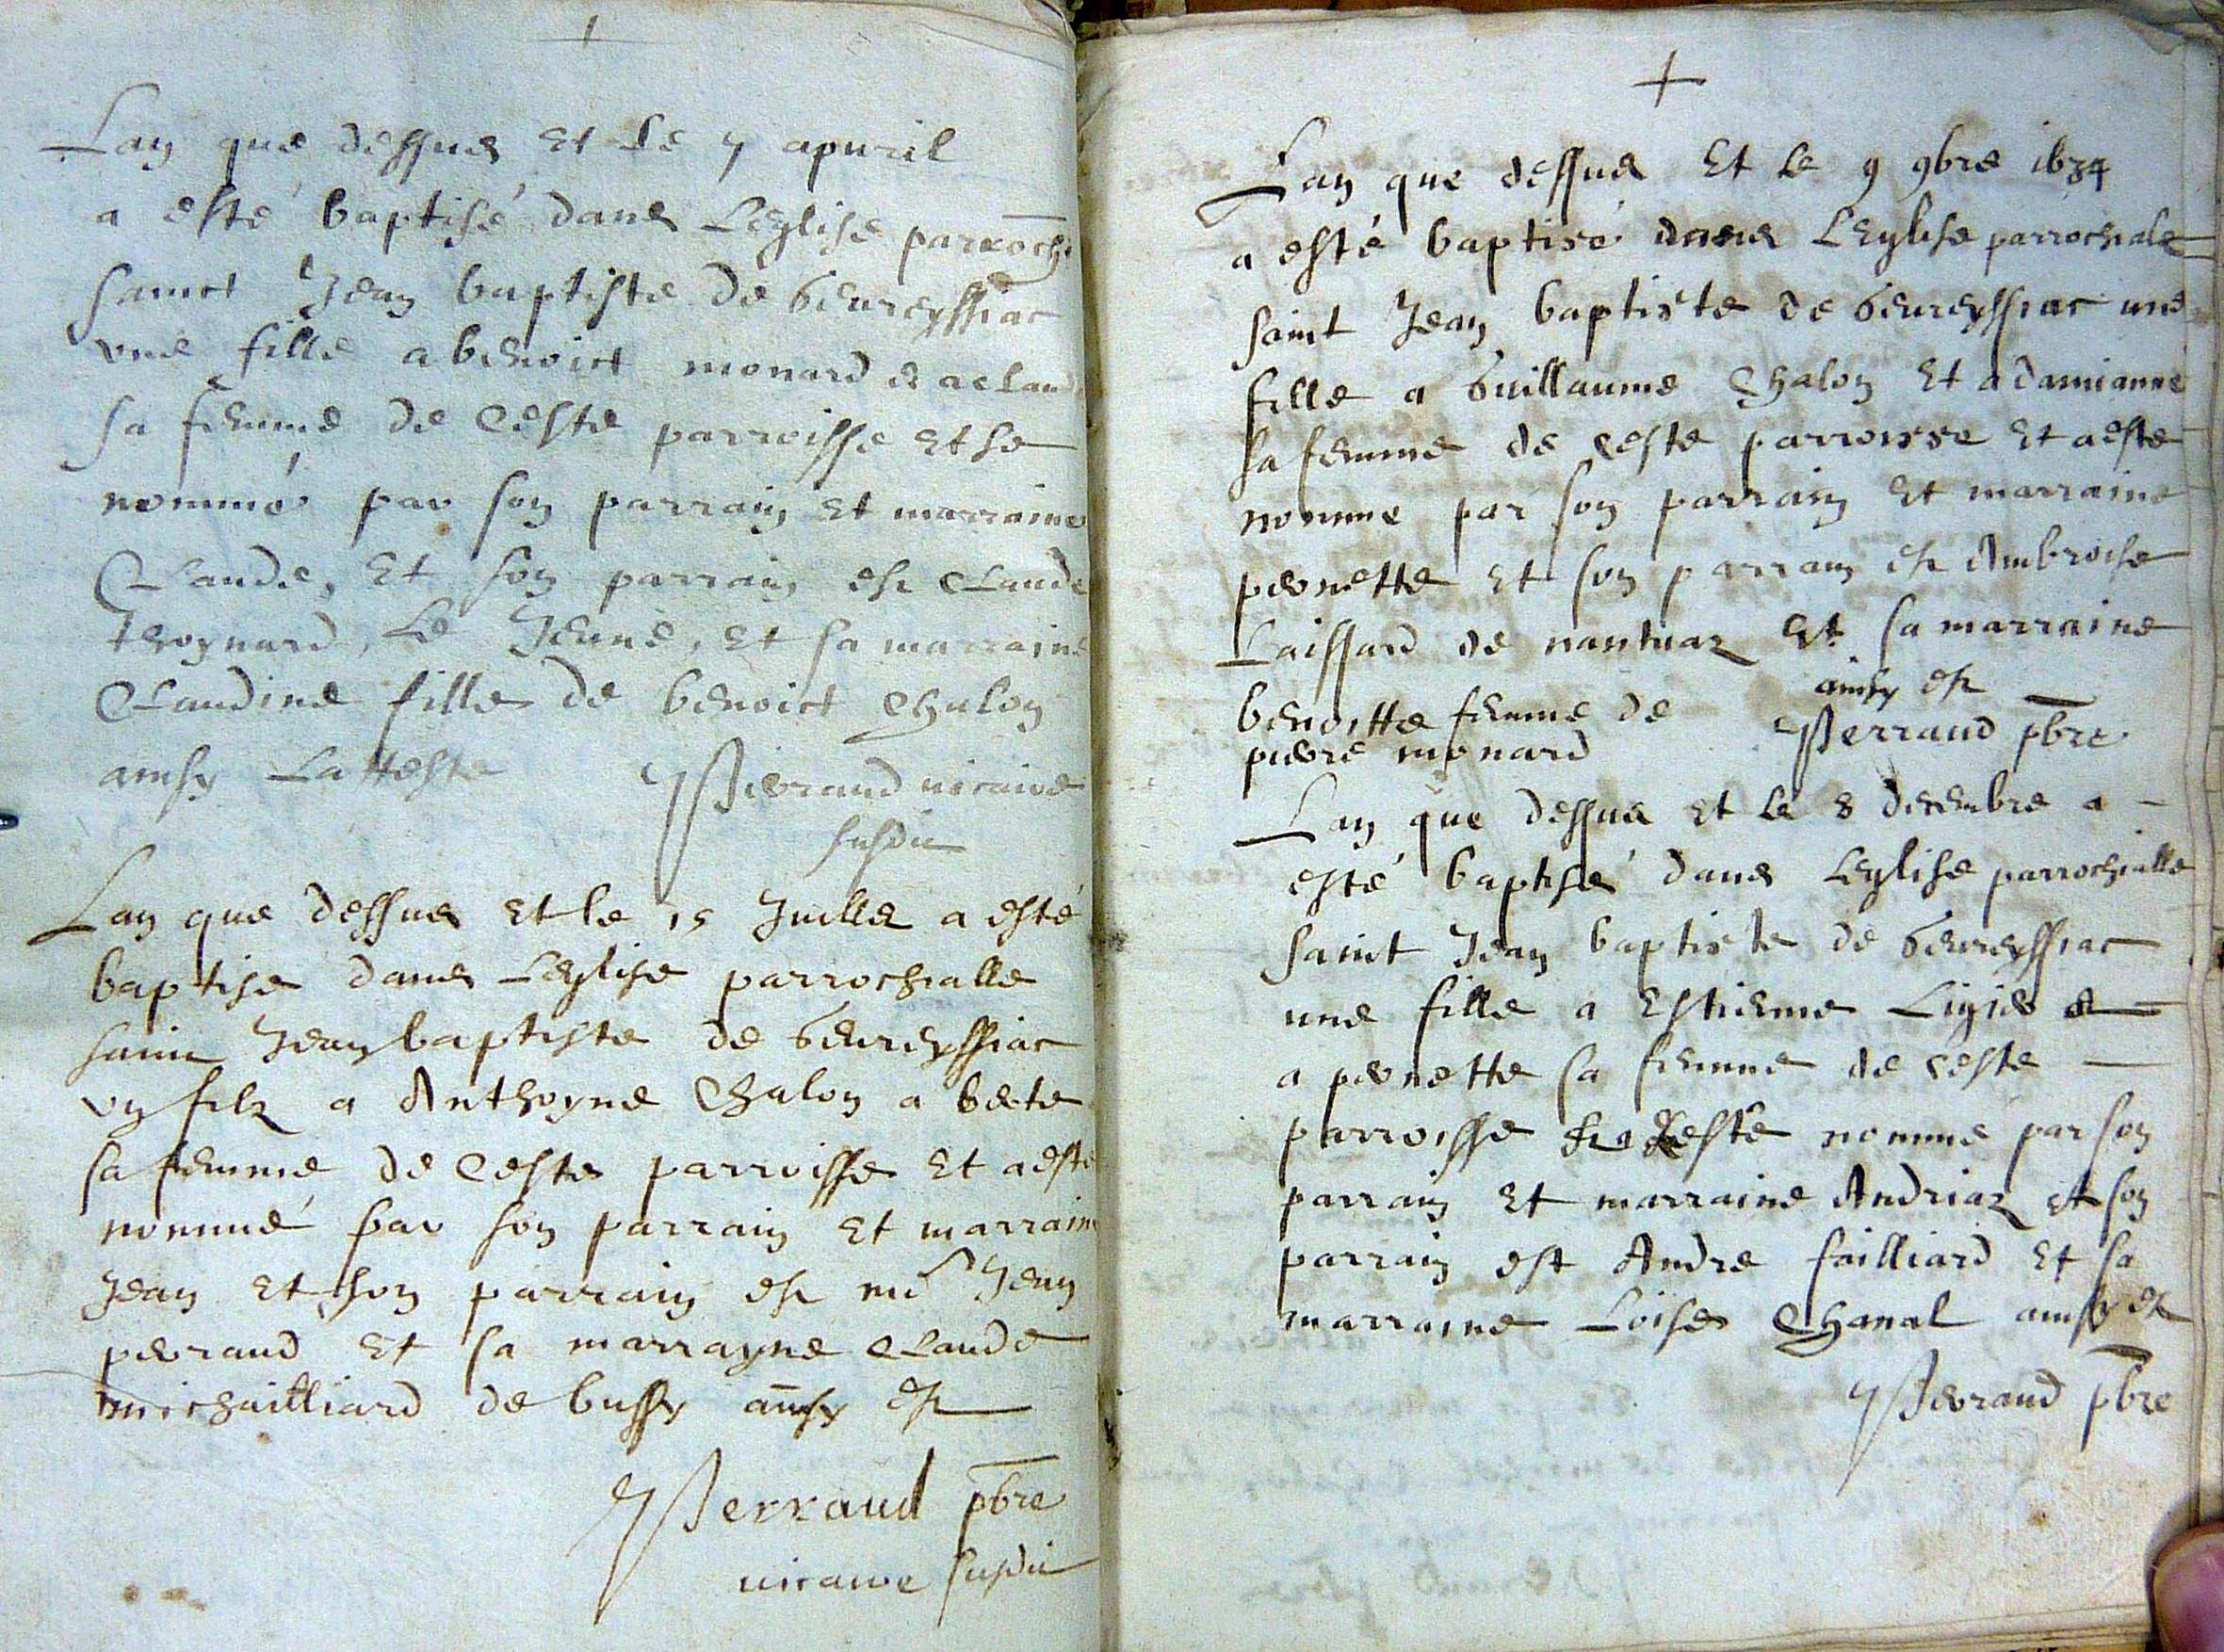 +
Lan que dessus et le 7 apuril
a esté baptisé dans Leglise parroch
sainct Jean baptiste de Geureyssiac
vne fille a benoict monard et a Clau
sa femme de Ceste parroisse et se
nommé par son parrain et marraine
Claude, Et son parrain est Claude
thoynard, Le Jeune, et sa marraine
Claudine fille de benoict Chalon
ainsy Latteste Perraud uicaire
susdit
Lan que dessus et le 15 Juille a esté
baptise dans Leglise parrochialle
sainct Jean baptiste de Geureyssiac
vn filz a Anthoyne Chalon a
sa femme de Ceste parroisse Et a esté
nommé par son parrain et marraine
Jean et son parrain est Jean
perraud et sa marrayne Claude
michailliard de bussy ainsy est
Perraud pbre
uicaire susdit
+
Lan que dessus Et le 9 9bre 1634
a esté baptisé dans LEglise parrochiale
saint Jean baptiste de Geureyssiac une
fille a Guillaume Chalon Et a damianne
sa femme de ceste parroisse Et a este
nomme par son parrain et marraine
pernette et son parrain est Ambroise
Laissard de nantuaz Et sa marraine
benoitte femme de ainsy est
pierre monard Perraud pbre
Lan que dessus et le 8 decembre a
esté baptisé dans Leglise parrochialle
saint Jean baptiste de Geureyssiac
une fille a Estienne Ligier et
a pernette sa femme de ceste
parroisse esté nomme par son
parrain et marraine Andriaz et son
parrain est Andre failliard Et sa
marraine Loise Chanal ainsy est
Perraud pbre